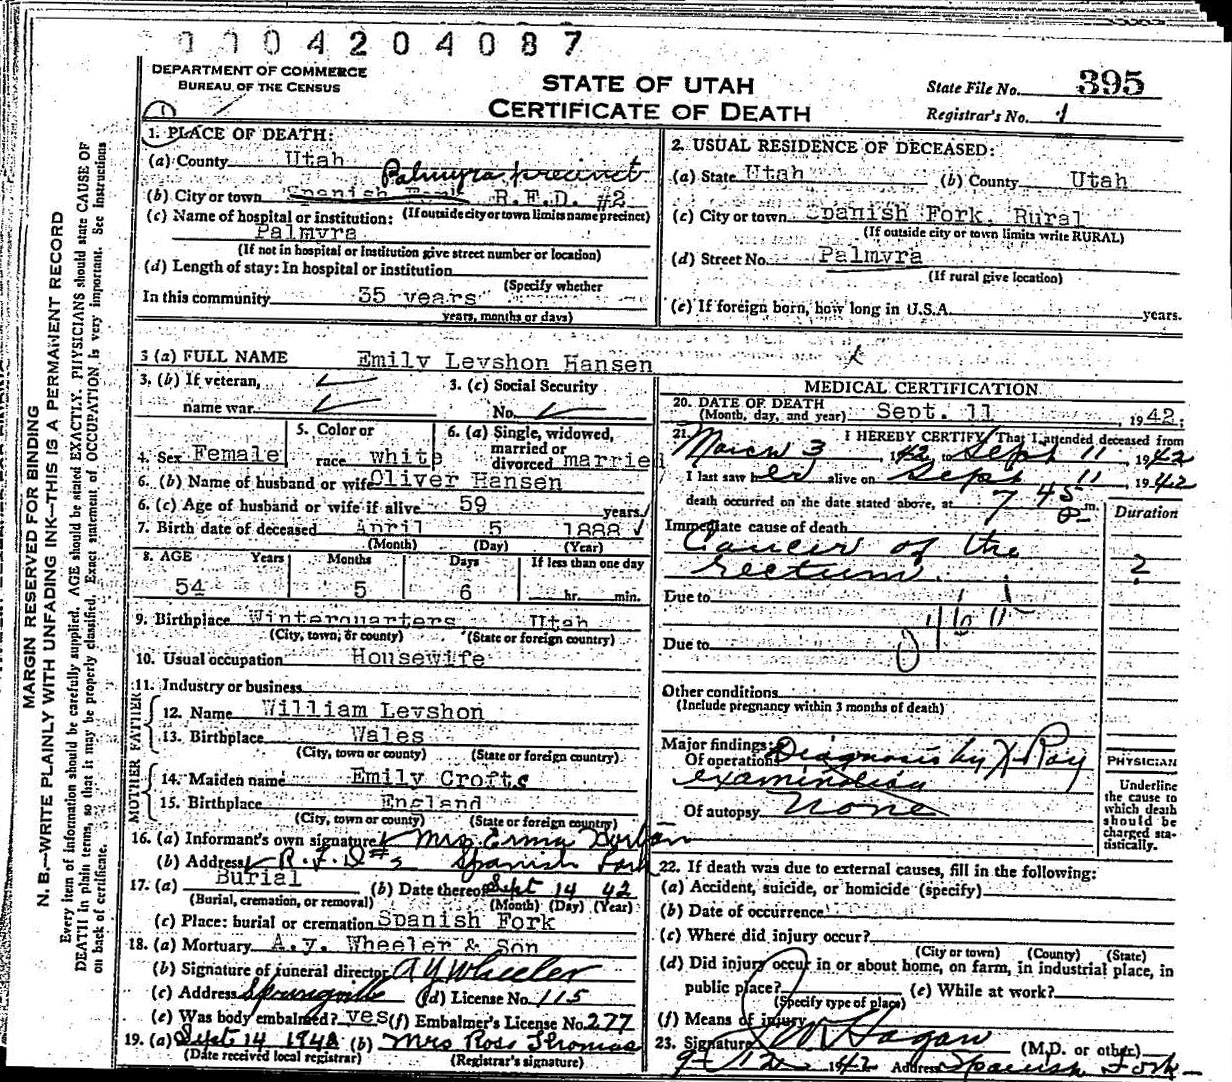 0 0 0 4 2 0 4 0 8 7
DEPARTMENT OF COMMERCE
BUREAU OF THE CENSUS
STATE OF UTAH
CERTIFICATE OF DEATH
State File No. 395
Registrar's No. 1
MARGIN RESERVED FOR BINDING
N. B.—WRITE PLAINLY WITH UNFADING INK—THIS IS A PERMANENT RECORD
Every item of information should be carefully supplied. AGE should be stated EXACTLY. PHYSICIANS should state CAUSE OF
DEATH in plain terms, so that it may be properly classified. Exact statement of OCCUPATION is very important. See Instructions
on back of certificate.
1. PLACE OF DEATH:
(a) County Utah
Palmyra precinct
(b) City or town Spanish Fork R.F.D. #2
(c) Name of hospital or institution: (If outside city or town limits name precinct)
Palmyra
(If not in hospital or institution give street number or location)
(d) Length of stay: In hospital or institution
(Specify whether
In this community 35 years
years, months or days)
2. USUAL RESIDENCE OF DECEASED:
(a) State Utah (b) County Utah
(c) City or town Spanish Fork Rural
(If outside city or town limits write RURAL)
(d) Street No. Palmyra
(If rural give location)
(e) If foreign born, how long in U.S.A. years.
3 (a) FULL NAME Emily Leyshon Hansen
3. (b) If veteran,
name war
3. (c) Social Security
No.
4. Sex Female
5. Color or
race white
6. (a) Single, widowed,
married or
divorced married
6. (b) Name of husband or wife Oliver Hansen
6. (c) Age of husband or wife if alive 59 years
7. Birth date of deceased April 5 1888
(Month) (Day) (Year)
8. AGE Years Months Days If less than one day
54 5 6 hr. min.
9. Birthplace Winterquarters Utah
(City, town, or county) (State or foreign country)
10. Usual occupation Housewife
11. Industry or business
FATHER
12. Name William Leyshon
13. Birthplace Wales
(City, town or county) (State or foreign country)
MOTHER
14. Maiden name Emily Crofts
15. Birthplace England
(City, town or county) (State or foreign country)
16. (a) Informant's own signature Mrs Erma
(b) Address R.F.D #2 Spanish Fork
17. (a) Burial (b) Date thereof Sept 14 42
(Burial, cremation, or removal) (Month) (Day) (Year)
(c) Place: burial or cremation Spanish Fork
18. (a) Mortuary A.Y. Wheeler & Son
(b) Signature of funeral director A Y Wheeler
(c) Address Springville (d) License No. 115
(e) Was body embalmed? yes (f) Embalmer's License No. 277
19. (a) Sept 14 1942 (b) Mrs Ross Thomas
(Date received local registrar) (Registrar's signature)
MEDICAL CERTIFICATION
20. DATE OF DEATH
(Month, day, and year) Sept. 11, 1942;
21. I HEREBY CERTIFY, That I attended deceased from
March 3, 1942 to Sept 11, 1942
I last saw her alive on Sept 11, 1942
death occurred on the date stated above, at 7 45 P m.
Duration
Immediate cause of death
Cancer of the
rectum. ?
Due to
Due to
Other conditions
(Include pregnancy within 3 months of death)
Major findings:
Of operation Diagnosis by X Ray
examination
Of autopsy None
PHYSICIAN
Underline
the cause to
which death
should be
charged sta-
tistically.
22. If death was due to external causes, fill in the following:
(a) Accident, suicide, or homicide (specify)
(b) Date of occurrence
(c) Where did injury occur?
(City or town) (County) (State)
(d) Did injury occur in or about home, on farm, in industrial place, in
public place? (e) While at work?
(Specify type of place)
(f) Means of injury
23. Signature Hagan (M.D. or other)
9-12 1942 Address Spanish Fork